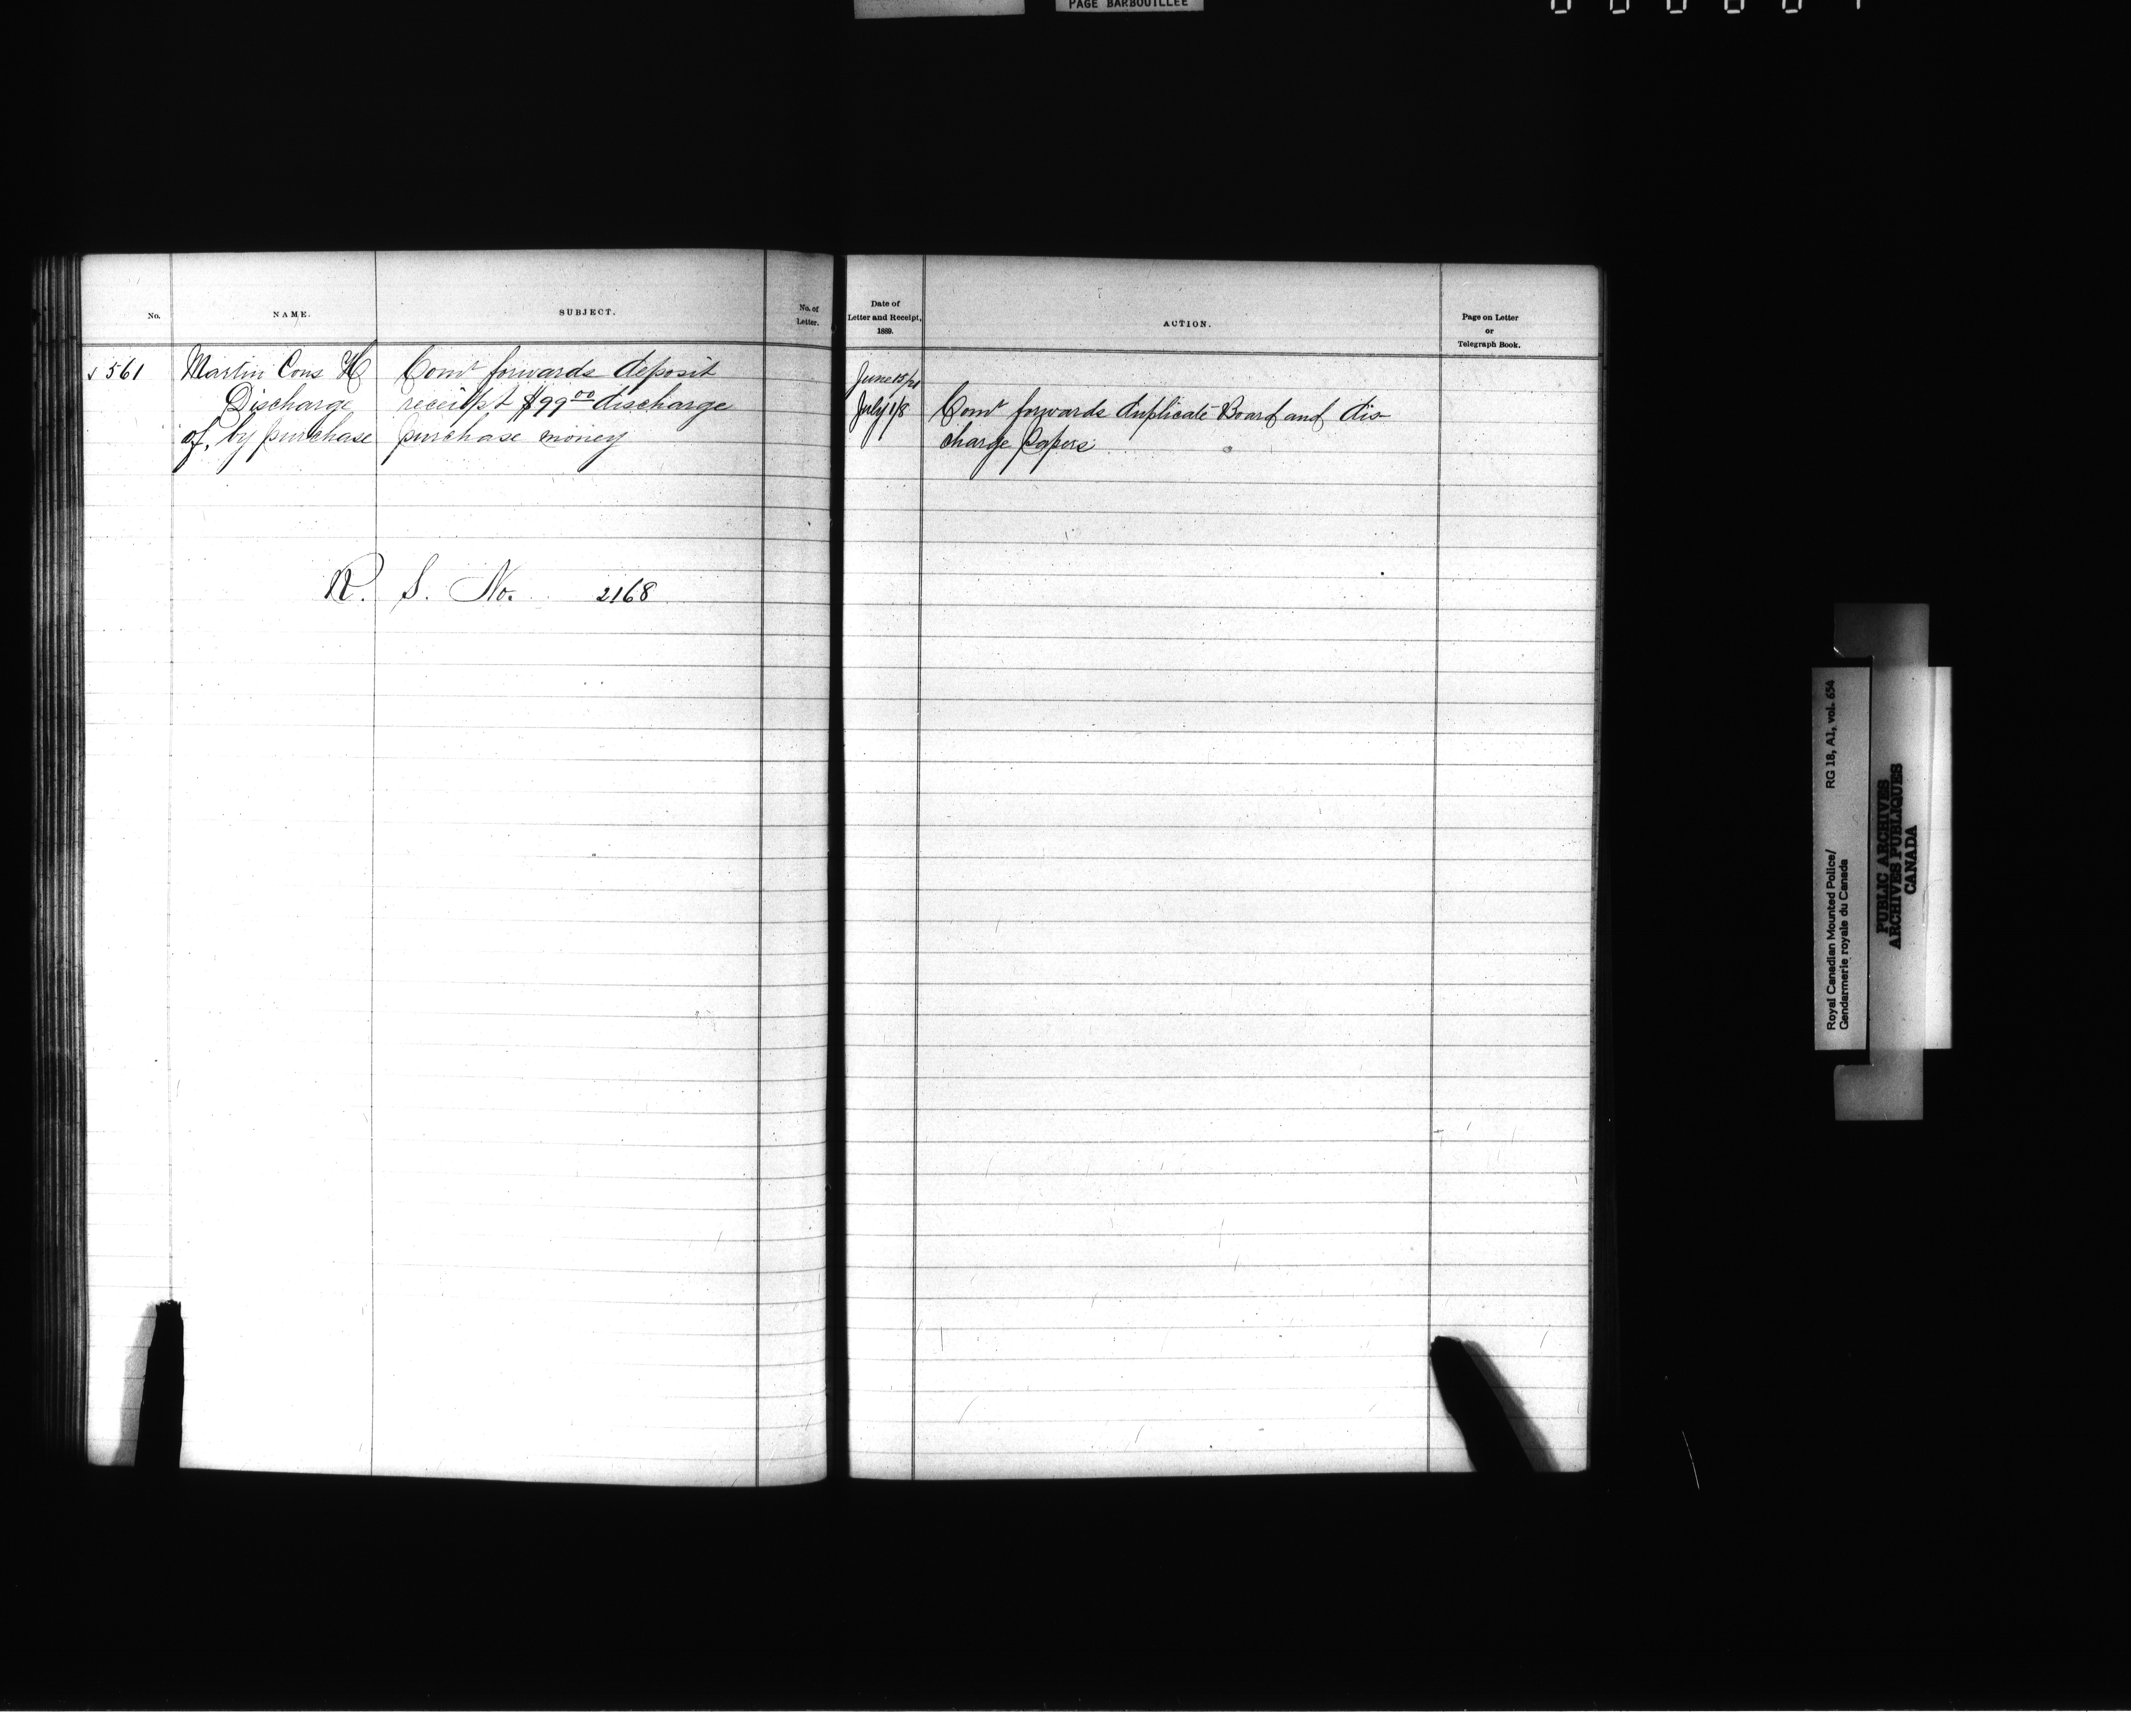 PAGE BARBOUILLÉE
No.
NAME.
SUBJECT.
No. of
Letter.
561
Martin Cons H
Discharge
of, by purchase
Comr forwards deposit
receipt $99 00 discharge
purchase money
R. S. No. 2168
Date of
Letter and Receipt,
1889.
ACTION.
Page on Letter
or
Telegraph Book.
June 15/21
July 1/8
Comr forwards duplicate Board and dis-
charge papers
Royal Canadian Mounted Police/ RG 18, A1, vol. 654
Gendarmerie royale du Canada
PUBLIC ARCHIVES
ARCHIVES PUBLIQUES
CANADA